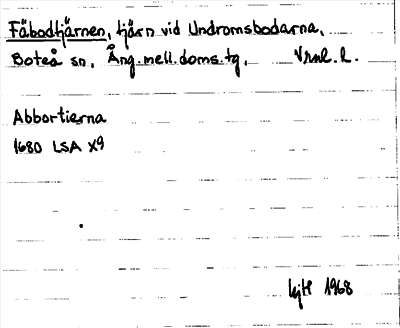 Fäbodtjärnen, tjärn vid Undromsbodarna,
Boteå sn, Ång. mell. doms. tg, Vrnl. l.
Abbortierna
1680 LSA X9
1968